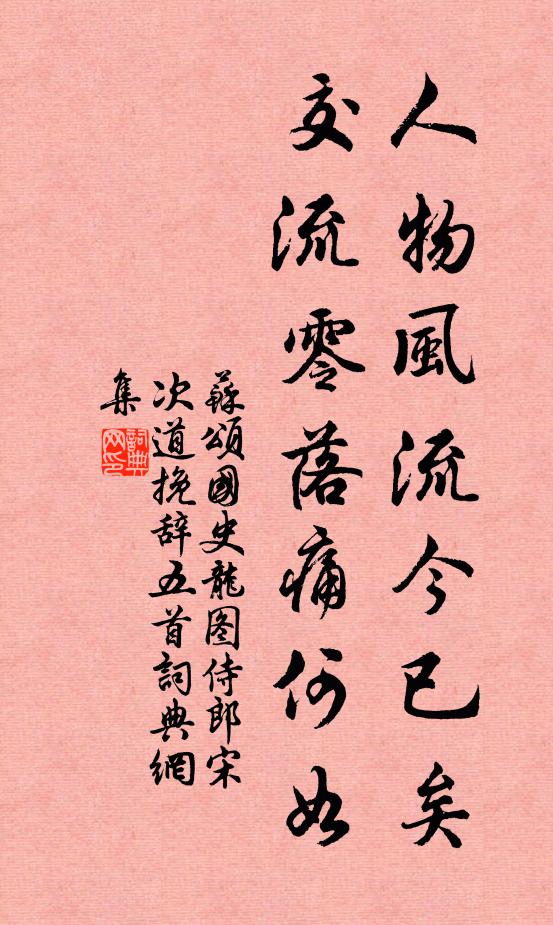 人物風流今已矣
交流零落痛何如
蘇頌國史龍图侍郎宋
次道挽辞五首詞典網
集
詞典网印